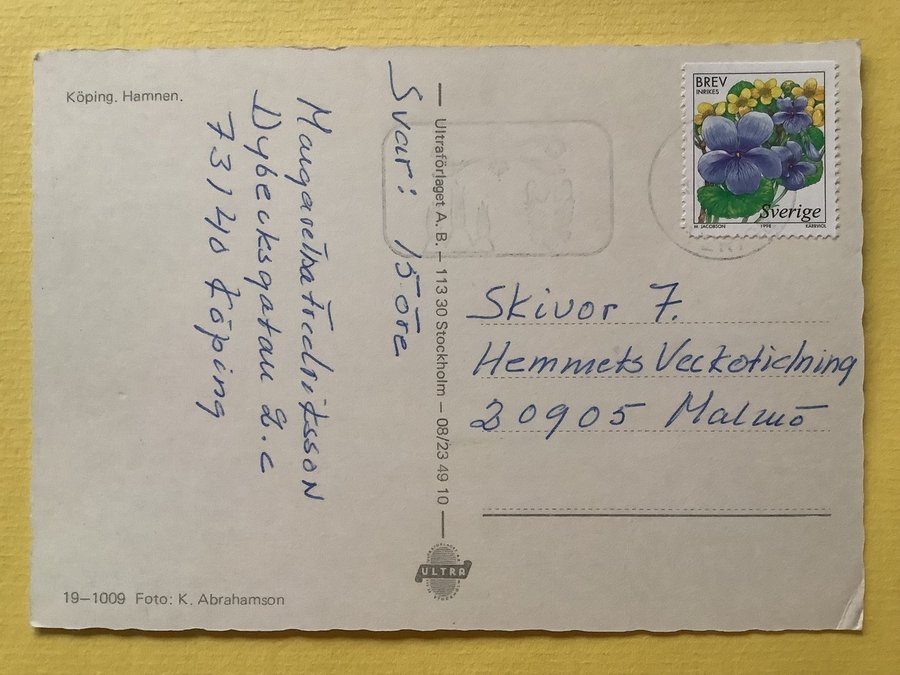 Köping. Hamnen.
Svar: 15öre
Margaretha Fredriksson
Dybecksgatan 2.c
73140 Köping
Ultraförlaget A. B. – 113 30 Stockholm – 08/23 49 10
BREV
INRIKES
Sverige
M. JACOBSON 1998 KÄRRHOL
Skivor 7.
Hemmets Veckotidning
20905 Malmö
ULTRA
19–1009 Foto: K. Abrahamson